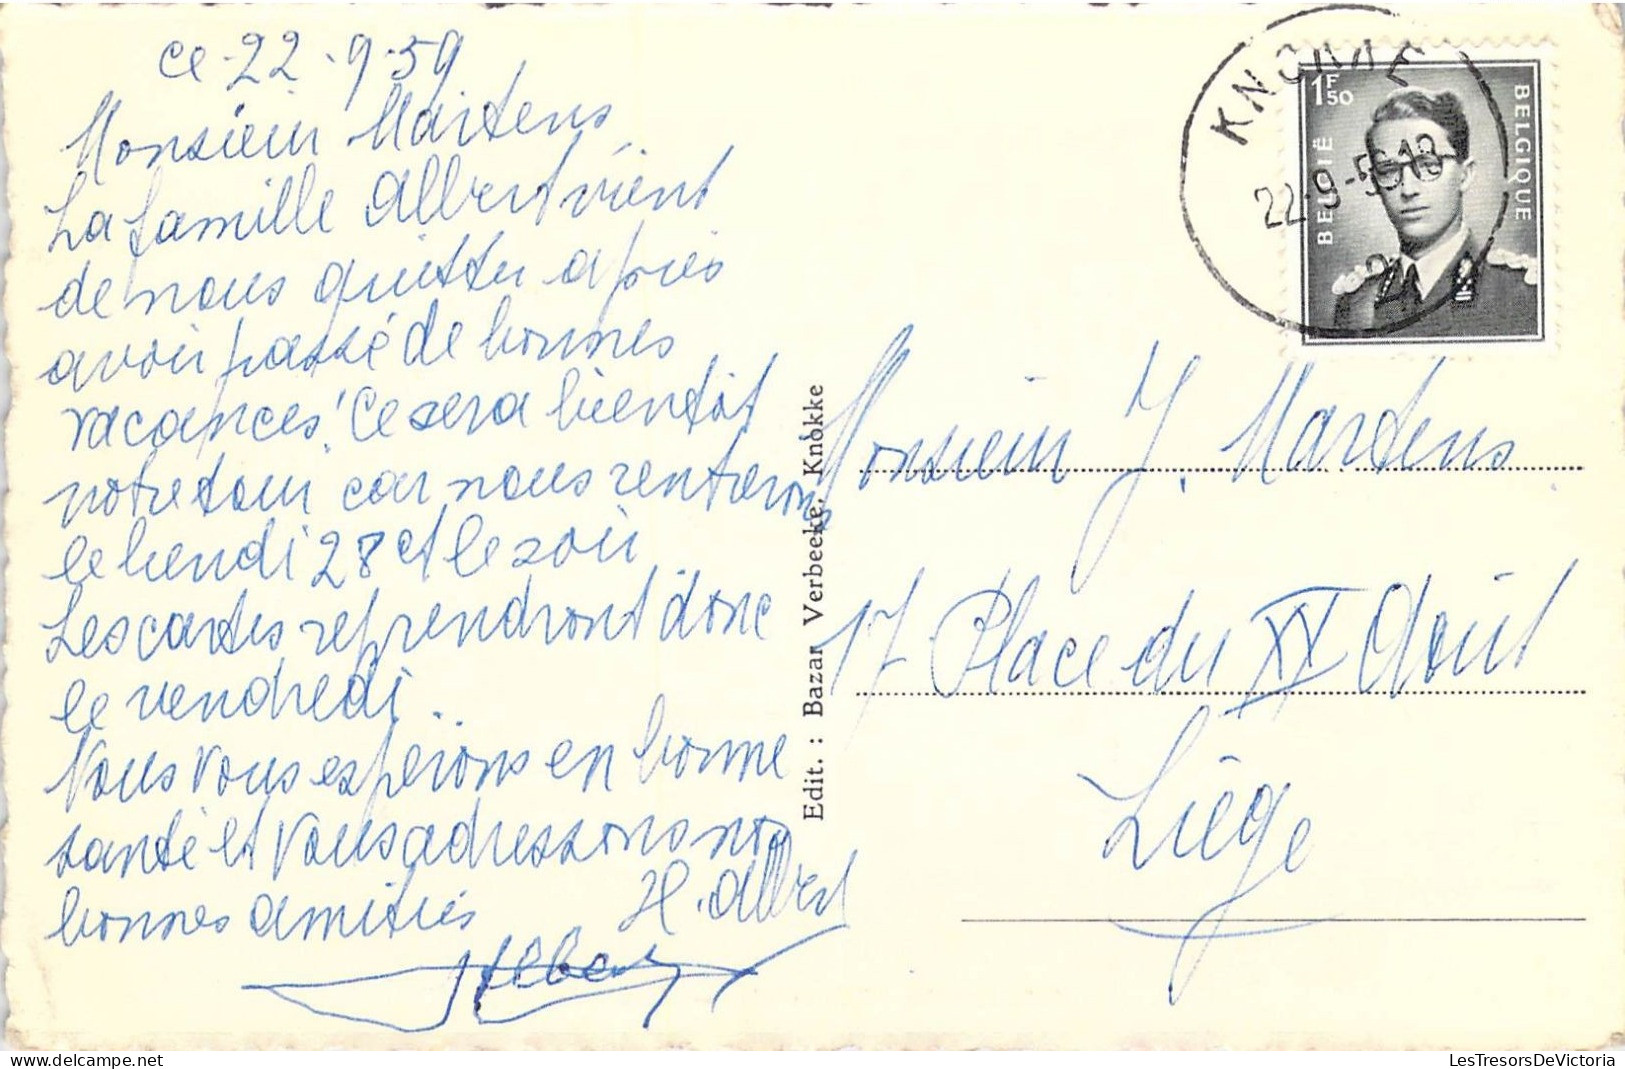 ce 22.9.59
Monsieur Martens
La famille Albert vient
de nous quitter après
avoir passé de bonnes
vacances! Ce sera bientôt
notre tour car nous rentrerons
le lundi 28 et le soir
Les cartes reprendront donc
le vendredi..
Nous vous espérons en bonne
santé et vous adressons nos
bonnes amitiés
H. Albert
Albert
Edit. : Bazar Verbeeke, Knokke
KNOKKE
22-9-59.18
21
1F50
BELGIË
BELGIQUE
Monsieur J. Martens
17 Place du XX Août
Liège
LesTresorsDeVictoria